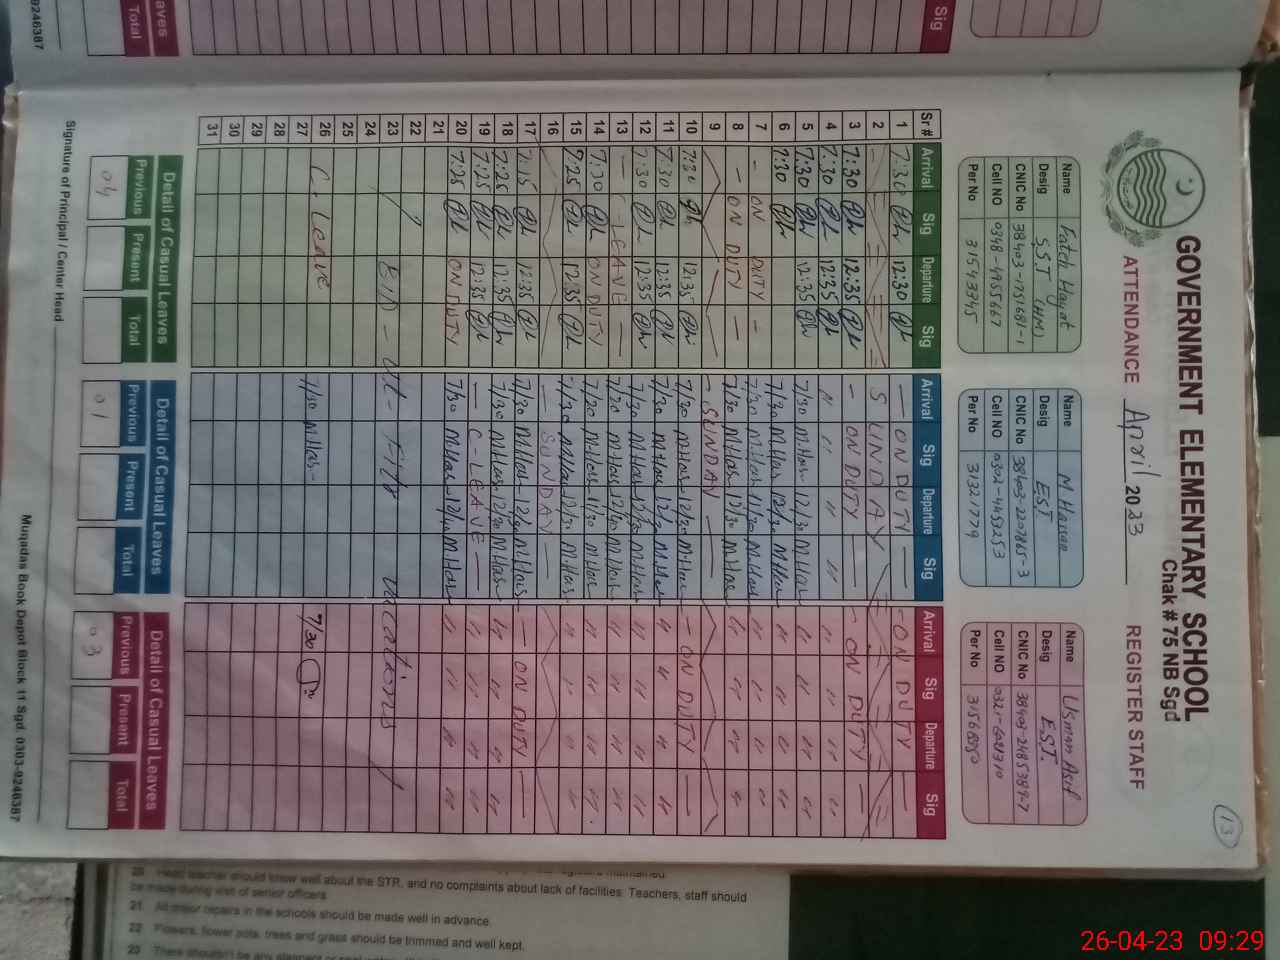 GOVERNMENT ELEMENTARY SCHOOL
Chak # 75 NB Sgd
ATTENDANCE April 2023 REGISTER STAFF
13
Name Fateh Hayat
Desig S.S.T (HM)
CNIC No 38403-1751681-1
Cell NO 0348-4955667
Per No 31543345
Name M. Hassan
Desig E.S.T
CNIC No 38403-2207865-3
Cell NO 0302-4453253
Per No 31321779
Name Usman Asif
Desig E.S.T.
CNIC No 38403-2485389-7
Cell NO 0321-6021310
Per No 31568050
Sr # Arrival Sig Departure Sig Arrival Sig Departure Sig Arrival Sig Departure Sig
1 7:30 12:30 — ON DUTY — — ON DUTY —
2 SUNDAY
3 7:30 12:35 — ON DUTY — — ON DUTY —
4 7:30 12:35 " " " " " " " "
5 7:30 12:35 7/30 M.Has 12/30 M.Has " " " "
6 7:30 7/30 M.Has 12/30 M.Has " " " "
7 — ON DUTY — 7/30 M.Has 11/30 M.Has " " " "
8 — ON DUTY — 7/30 M.Has 12/30 M.Has " " " "
9 — SUNDAY —
10 7:30 12:35 7/30 M.Has 12/30 M.Has — ON DUTY —
11 7:30 12:35 7/30 M.Has 12/30 M.Has " " " "
12 7:30 12:35 7/30 M.Has 12/30 M.Has " " " "
13 — C-LEAVE — 7/30 M.Has 12/40 M.Has " " " "
14 7:30 ON DUTY 7/30 M.Has 11/30 M.Has " " " "
15 7:25 12:35 7/30 M.Has 12/30 M.Has " " " "
16 — SUNDAY —
17 7:15 12:35 7/30 M.Has 12/30 M.Has — ON DUTY —
18 7:25 12:35 7/30 M.Has 12/30 M.Has " " " "
19 7:25 12:35 — C-LEAVE — " " " "
20 7:25 ON DUTY 7/30 M.Has 12/40 M.Has " " " "
21
22
23 EID-Ul-Fitr vacations
24
25
26 C. Leave 7/30 M.Has 7/30
27
28
29
30
31
Detail of Casual Leaves
Previous Present Total
04
Detail of Casual Leaves
Previous Present Total
01
Detail of Casual Leaves
Previous Present Total
03
Signature of Principal / Center Head
Muqadas Book Depot Block 11 Sgd. 0303-9246387
Sig
aves
Total
9246387
Sig
20 Head teacher should know well about the STR, and no complaints about lack of facilities. Teachers, staff should
be made during visit of senior officers
21. All major repairs in the schools should be made well in advance.
22 Flowers, flower pots, trees and grass should be trimmed and well kept.
23 There shouldn't be any
26-04-23 09:29